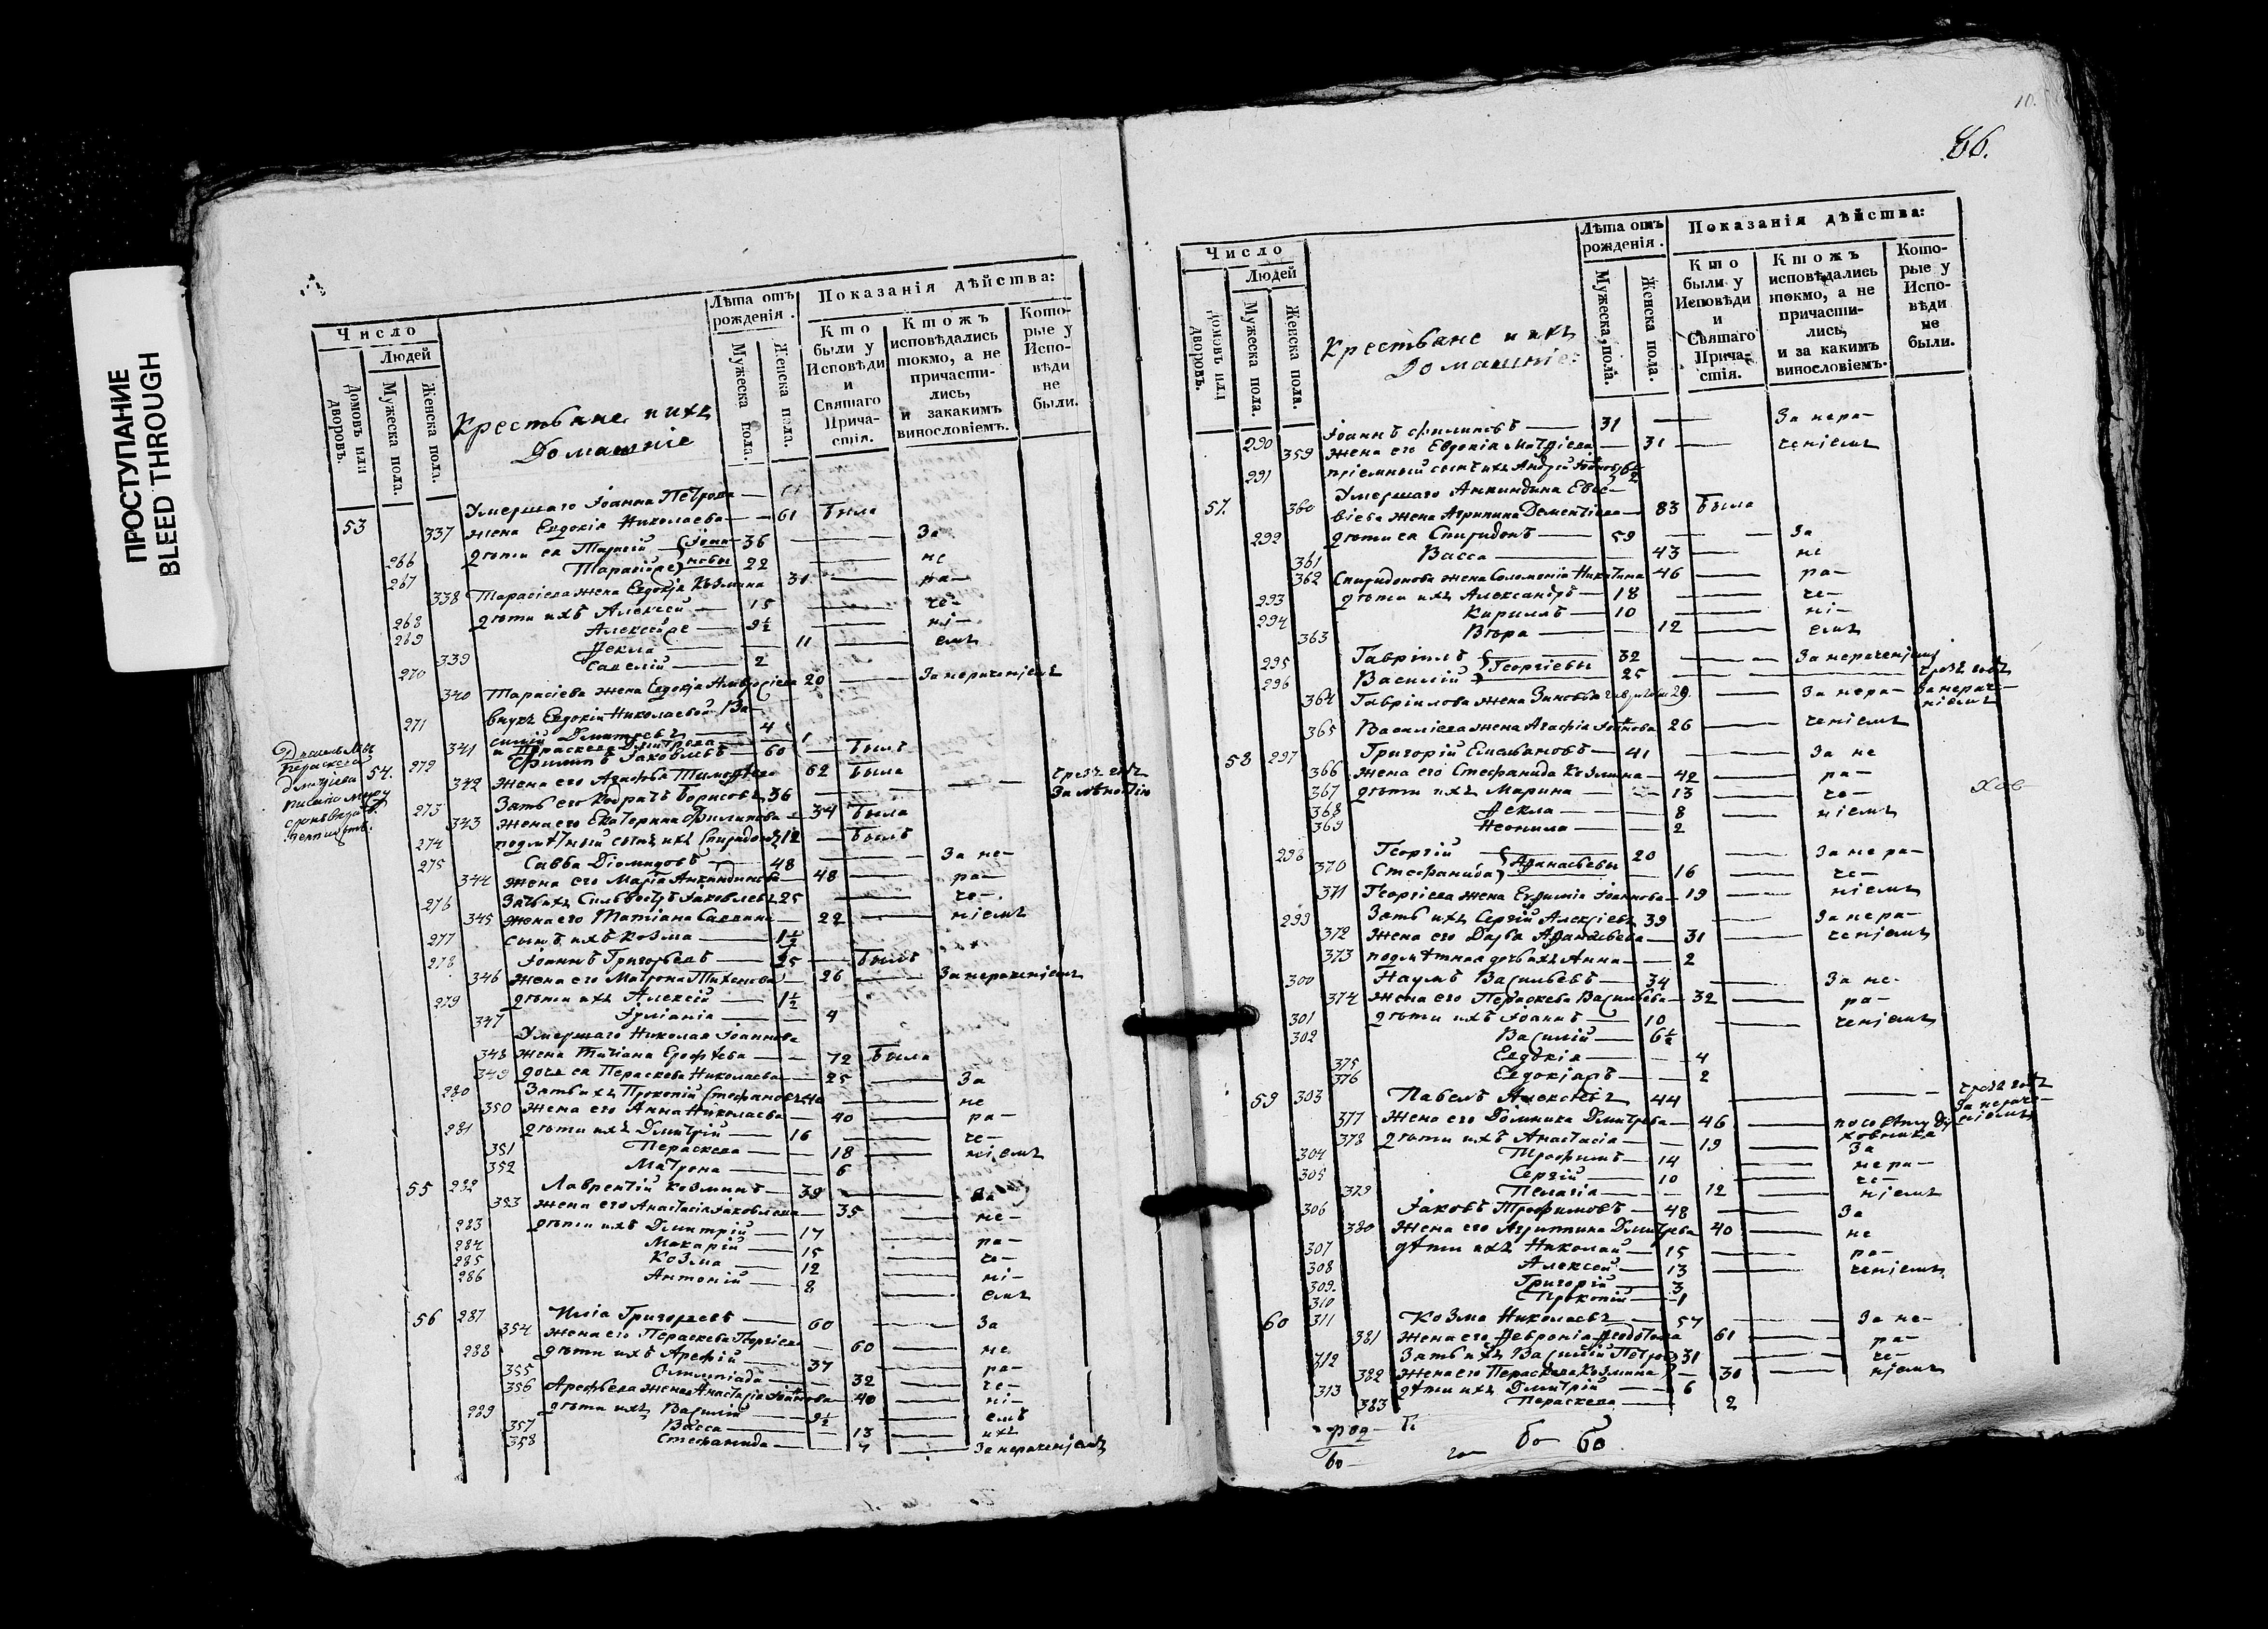 ПРОСТУПАНИЕ
BLEED THROUGH
Число
Людей
Домовъ или дворовъ.
Мужеска пола.
Женска пола.
Крестьяне и ихъ
Домашніе
Лѣта отъ рожденія.
Мужеска пола.
Женска пола.
Показанія дѣйства:
Кто были у Исповѣди и Святаго Прича-стія.
Ктожъ исповѣдались токмо, а не причасти-лись, и закакимъ винословіемъ.
Кото-рые у Испо-вѣди не были.
Умершаго Іоанна Петрова
53 337 жена Евдокія Николаева 61 была
266 дѣти ея Тарасій Іоан- 36 За
267 Тарасій 2е новы 22 не
338 Тарасіева жена Евдокія Козмина 31 ра-
268 дѣти ихъ Алексей 15 че-
269 Алексей 2е 9½ ні-
339 Ѳекла 11 емъ
270 Савелій 2
340 Тарасіева жена Евдокія Амвросіева 20 За нераченіемъ
271 внукъ Евдокіи Николаевой Ва-
силій Дмитревъ 4
341 и Параскева Дмитрева 1
54. 272 Филипъ Іаковлевъ 60 былъ
342 Жена его Агафья Тимофѣева 62 была
273 Зять его Кодратъ Борисовъ 36 чрезъ годъ За лѣностію
343 Жена его Екатерина Филипова 34 была
274 подлѣтный сынъ ихъ Спиридонъ 12 былъ
275 Савва Діомидовъ 48 За не-
344 Жена его Марія Анкиндинова 48 ра-
276 Зять ихъ Сильвестръ Іаковлевъ 25 че-
345 Жена его Татіана Саввина 22 ніемъ
277 сынъ ихъ Козма 1½
278 Іоаннъ Григорьевъ 25 былъ
346 Жена его Матрона Тихонова 26 За нераченіемъ
279 дѣти ихъ Алексій 1½
347 Іуліанія 4
Умершаго Николая Іоаннова
348 Жена Татіана Ерофѣева 72 была
349 дочь ея Пераскева Николаева 25 За
280 Зять ихъ Прокопій Стефановъ не
350 Жена его Анна Николаева 40 ра-
281 дѣти ихъ Дмитрій 16 че-
351 Пераскева 18 ніемъ
352 Матрона 6
55 282 Лаврентій Козминъ 39 За
353 Жена его Анастасія Іаковлева 35 не-
283 дѣти ихъ Дмитрій 17 ра-
284 Макарій 15 че-
285 Козма 12 ні-
286 Антоній 8 емъ
56 287 Илія Григорьевъ 60 За
354 Жена его Пераскева Георгіева 60 не
288 дѣти ихъ Арефій 37 ра-
355 Олимпіада 32 че-
356 Арефьева жена Анастасія Іоаннова 40 ні-
289 дѣти ихъ Василій 9½ емъ
357 Васса 13 ихъ
358 Стефанида 7 За нераченіемъ
10.
86.
Число
Людей
Домовъ или дворовъ.
Мужеска пола.
Женска пола.
Крестьяне и ихъ
Домашніе:
Лѣта отъ рожденія.
Мужеска пола.
Женска пола.
Показанія дѣйства:
Кто были у Исповѣди и Святаго Прича-стія.
Ктожъ исповѣдались токмо, а не причасти-лись, и за какимъ винословіемъ.
Кото-рые у Испо-вѣди не были.
290 Іоаннъ Филиповъ 31 За нера-
359 Жена его Евдокія Матфіева 31 ченіемъ
291 пріемный сынъ ихъ Андрей Іоанновъ 6½
Умершаго Анкиндина Евсе-
57. 360 віева жена Агрипина Дементіева 83 была
292 дѣти ея Спиридонъ 59 За
361 Васса 43 не
362 Спиридонова жена Соломонія Никитина 46 ра-
293 дѣти ихъ Александръ 18 че-
294 Кирилъ 10 ні-
363 Вѣра 12 емъ
295 Гавріилъ Георгіевы 32 За нераченіемъ
296 Василій 25 чрезъ годъ За нераче-ніемъ
364 Гавріилова жена Зиновья 29 За нера-
365 Василіева жена Агафія Іоаннова 26 ченіемъ
58 297 Григорій Емельяновъ 41 За не
366 Жена его Стефанида Козмина 42 ра-
367 дѣти ихъ Марина 13 че-
368 Ѳекла 8 ніемъ
369 Неонила 2
298 Георгій Аѳанасьевы 20 За нера-
370 Стефанида 16 че-
371 Георгіева жена Евфимія Іоаннова 19 ніемъ
299 Зять ихъ Сергій Алексіевъ 39 За нера-
372 Жена его Дарья Аѳанасьева 31 ченіемъ
373 подлѣтная дочь ихъ Анна 2
300 Наумъ Васильевъ 34 За не-
374 Жена его Пераскева Васильева 32 ра-
301 дѣти ихъ Іоаннъ 10 ченіемъ
302 Василій 6½
375 Евдокія 4
376 Евдокія 2
59 303 Павелъ Алексѣевъ 44 чрезъ годъ За нераче-ніемъ
377 Жена его Домника Дмитрева 46 по совѣту Ду-ховника
378 дѣти ихъ Анастасія 19 За
304 Трофимъ 14 нера-
305 Сергій 10 че-
379 Пелагія 12 ніемъ
306 Іаковъ Трофимовъ 48 За
380 Жена его Агрипина Дмитрева 40 не
307 дѣти ихъ Николай 15 ра-
308 Алексей 13 ченіемъ
309. Григорій 3
310 Прокопій 1
60 311 Козма Николаевъ 57 За не-
381 Жена его Ѳевронія Ѳедотова 61 ра-
312 Зять ихъ Василій Петровъ 31 че-
382 Жена его Пераскева Козмина 30 ніемъ
313 дѣти ихъ Дмитрій 6
383 Пераскева 2